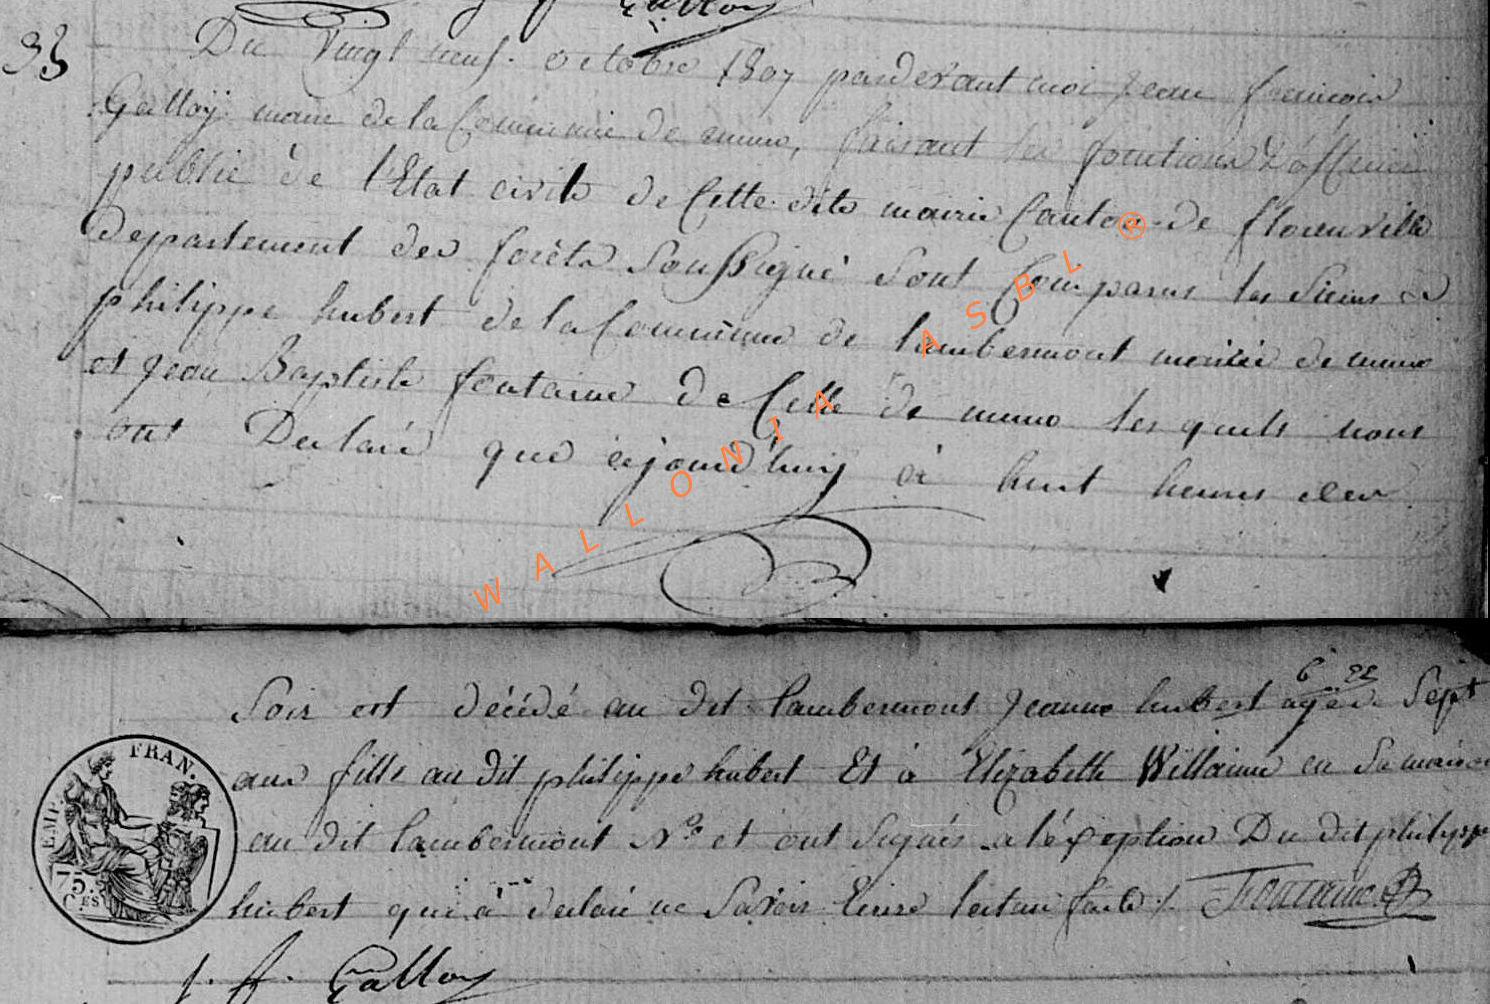 Galloy
33
Du Vingt neuf octobre 1807 pardevant moi Jean francois
Galloÿ maire de la Commune de muno, faisant les fonctions d'officier
public de l'Etat civile de Cette dite mairie Canton de florenville
Departement des forêts Soussigné Sont Comparus les Sieurs
philippe hubert de la Commune de lambermont mairie de muno
et Jean Baptiste fontaine de Celle de muno les quels nous
ont Declaré que aujourd'huy à huit heures du
WALLONIA ASBL ®
Soir est décédé au dit lambermont Jeanne hubert agée de Sept
ans fille au dit philippe hubert Et à Elizabeth Willaime en Sa maison
au dit lambermont N° et ont Signés a léxception Du dit philippe
hubert qui à declaré ne Savoir Ecrire lecture faite ./. Fontaine
EMP. FRAN.
75.
C.ES
J. f. Galloy